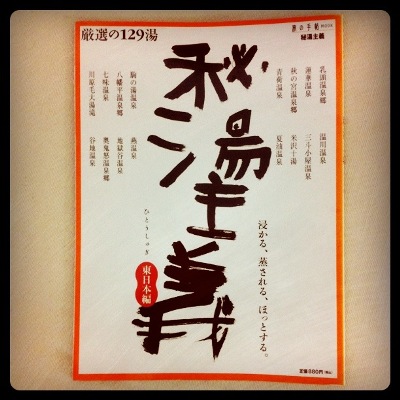 厳選の129湯
旅の手帖 MOOK
秘湯主義
秘湯主義
ひとうしゅぎ
東日本編
乳頭温泉郷
蓮華温泉
秋の宮温泉郷
青荷温泉
温川温泉
三斗小屋温泉
米沢十湯
夏油温泉
駒の湯温泉
八幡平温泉郷
七味温泉
川原毛大湯滝
燕温泉
地獄谷温泉
奥鬼怒温泉郷
谷地温泉
浸かる、蒸される、ほっとする。
定価880円(税込)